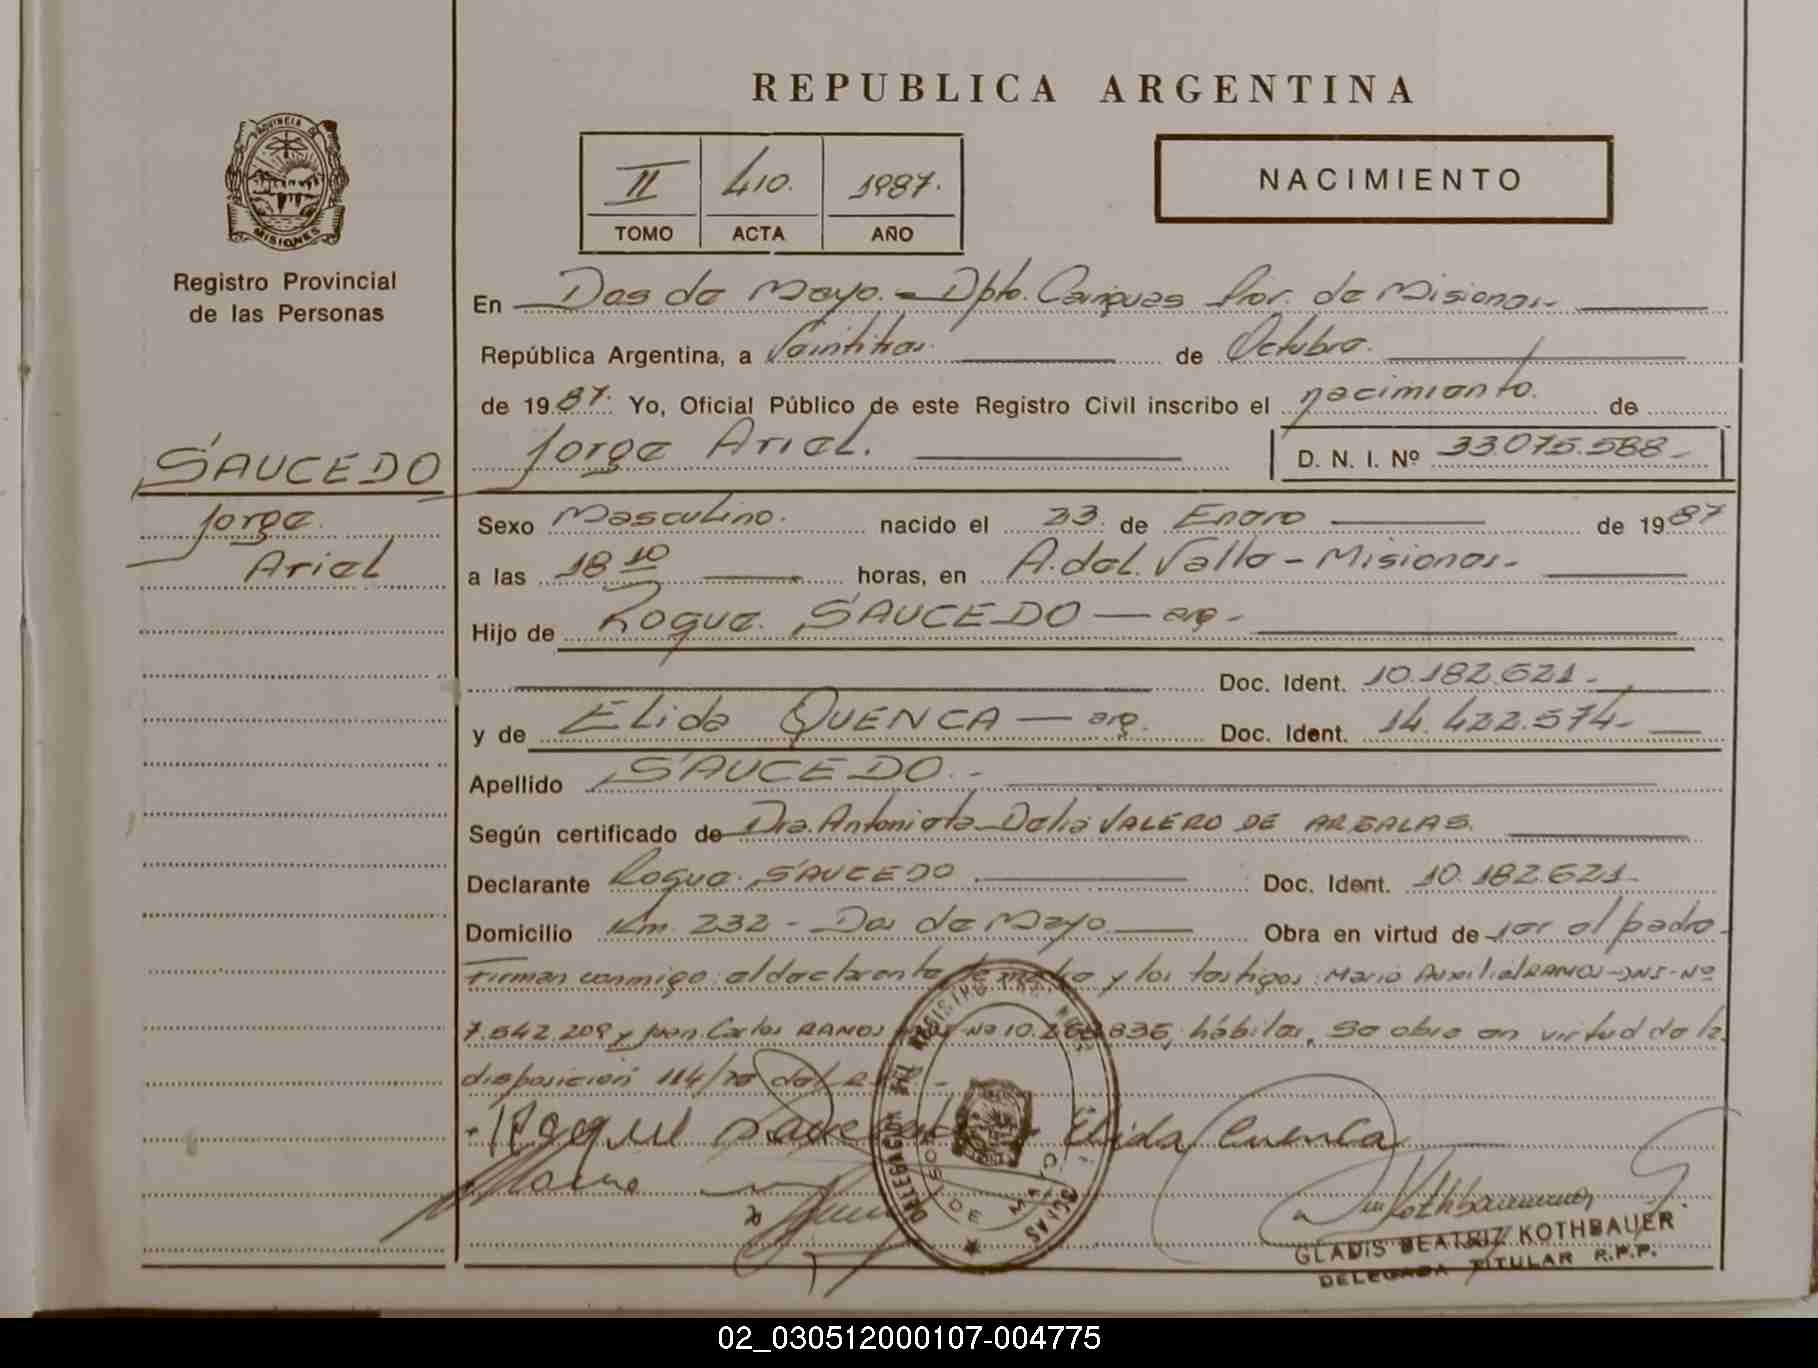 REPUBLICA ARGENTINA
PROVINCIA DE
MISIONES
Registro Provincial
de las Personas
II 410. 1987.
TOMO ACTA AÑO
NACIMIENTO
En Dos de Mayo. - Dpto. Cainguas Prov. de Misiones.-
República Argentina, a Veintitres. de Octubre.
de 1987. Yo, Oficial Público de este Registro Civil inscribo el nacimiento. de
Jorge Ariel. D. N. I. Nº 33.075.588.-
SAUCEDO
Jorge.
Ariel
Sexo Masculino. nacido el 23. de Enero de 1987
a las 18 10 horas, en A. del. Valle - Misiones.-
Hijo de Roque. SAUCEDO — arg.-
Doc. Ident. 10.182.621.-
y de Elida QUENCA — arg. Doc. Ident. 14.422.574.-
Apellido SAUCEDO.-
Según certificado de Dra. Antonieta Delia VALERO DE ARGALAS.
Declarante Roque. SAUCEDO. Doc. Ident. 10.182.621.-
Domicilio Km. 232 - Dos de Mayo Obra en virtud de ser el padre.-
Firman conmigo: el declarante la madre y los testigos: Mario RAMOS-DNI-Nº
7.542.209 y Juan. Carlos RAMOS Nº 10. 836, hábiles, Se obra en virtud de la
disposición 114/78 del
Elida Cuenca
DELEGACION DEL REGISTRO
DOS DE MAYO
GLADIS BEATRIZ KOTHBAUER
DELEGADA TITULAR R.P.P.
02_030512000107-004775